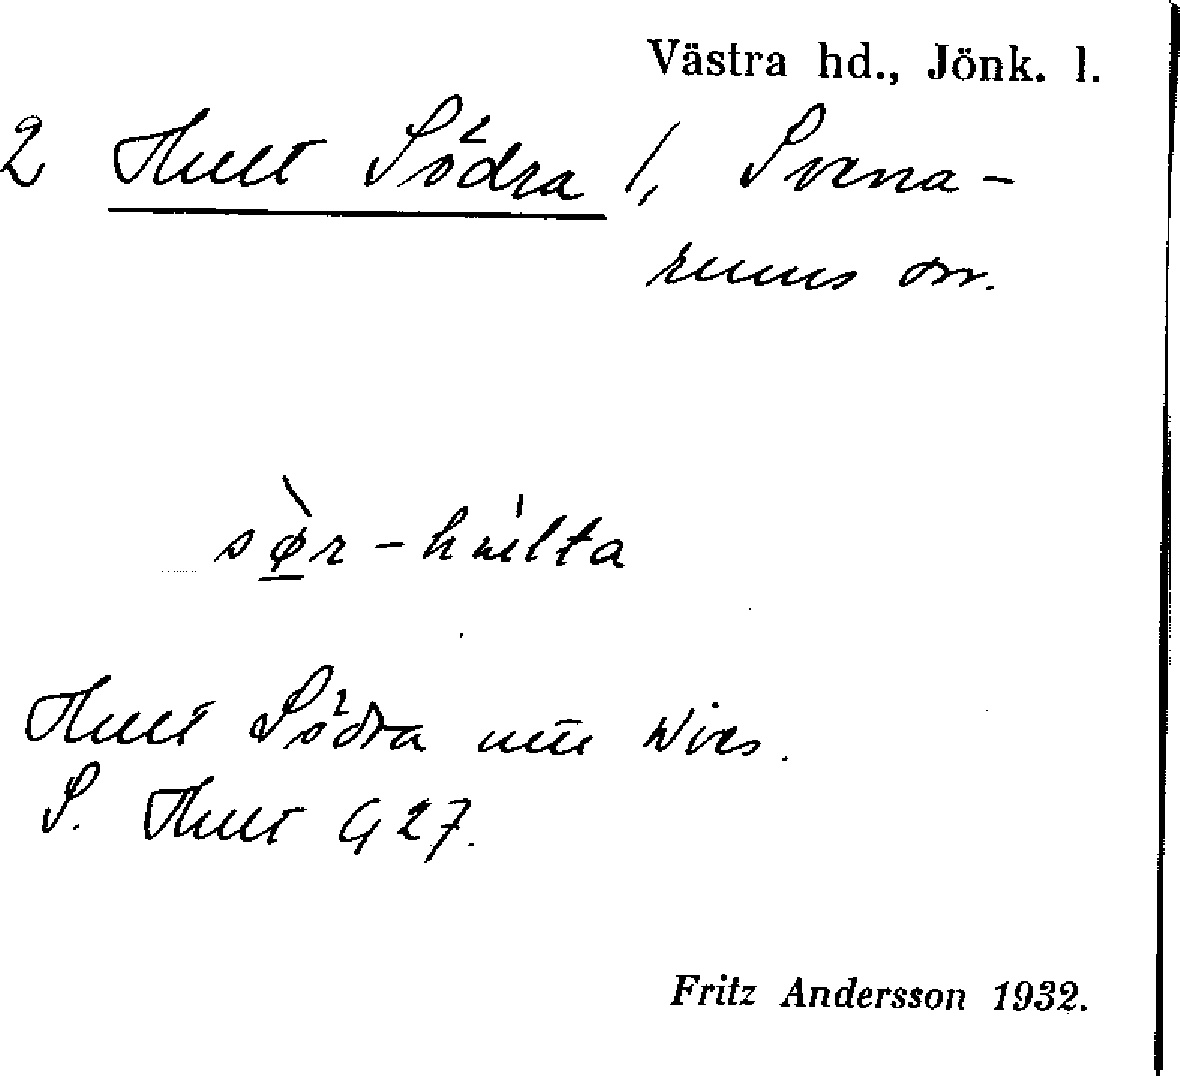 Västra hd., Jönk. l.
2 Hult Södra /, Svena-
rums sn.
sø̀r-hulta
Hult Södra
S. Hult G 27.
Fritz Andersson 1932.